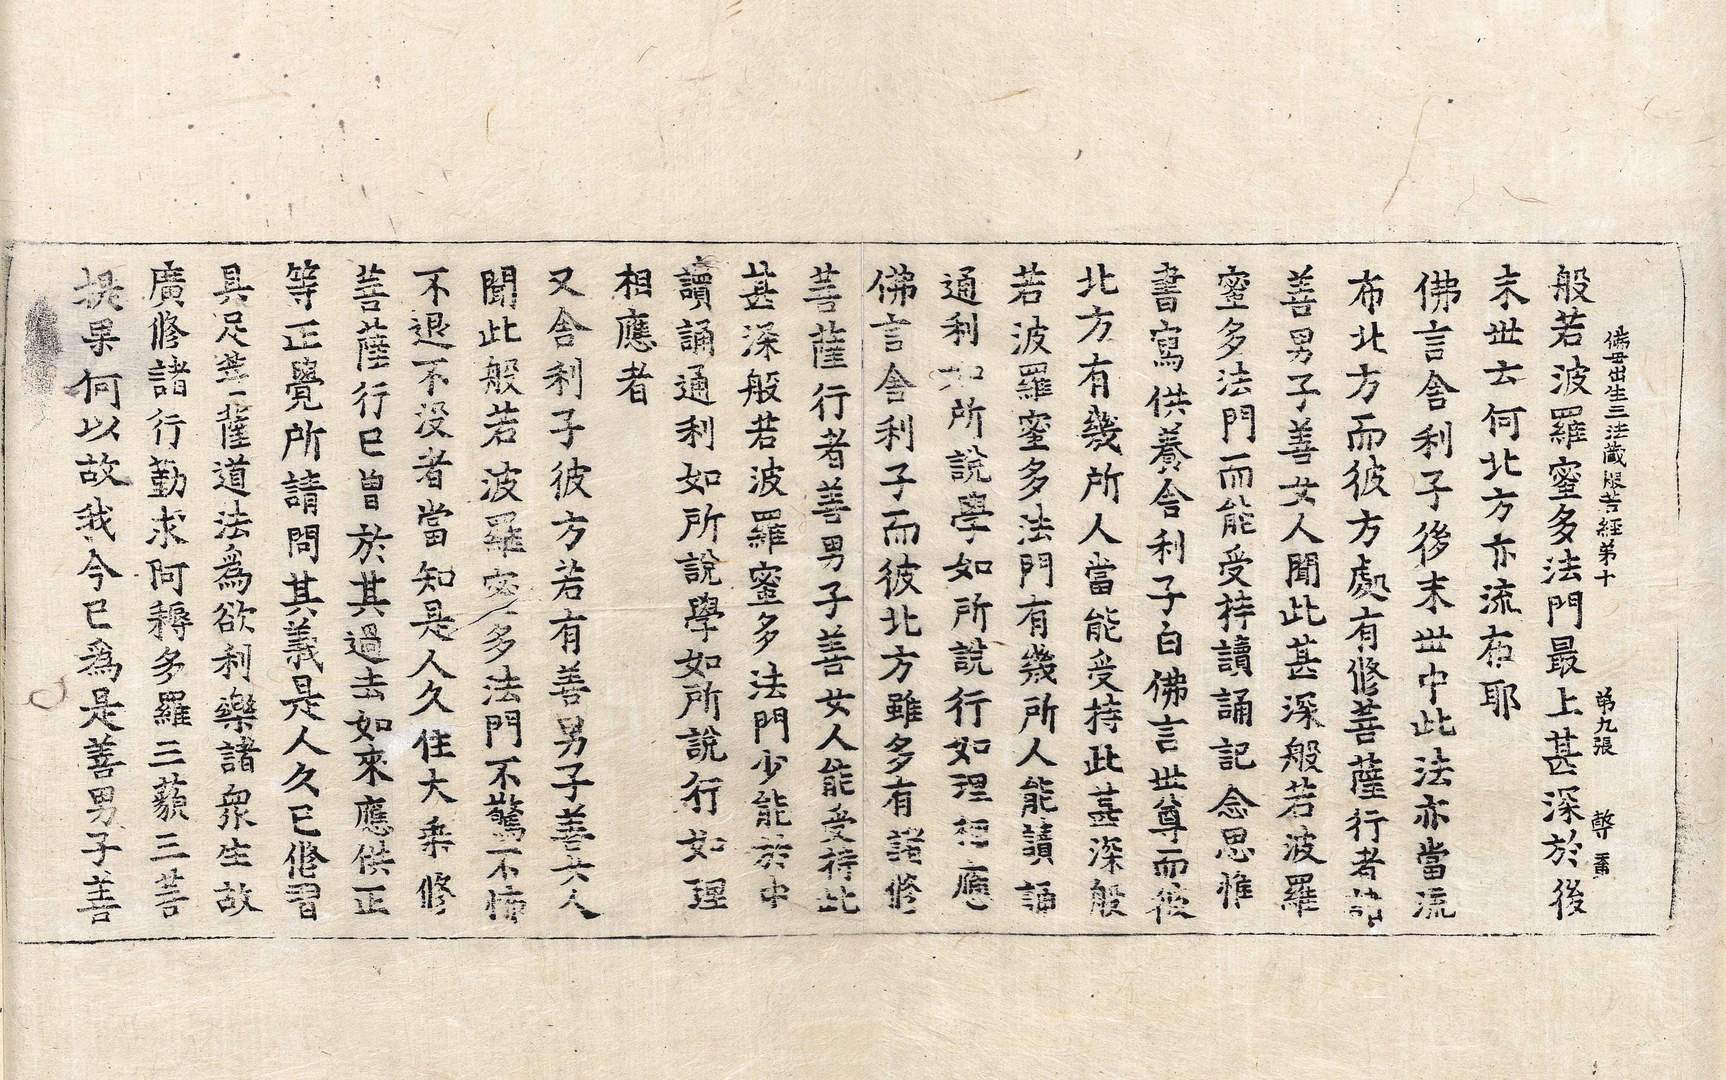 佛母出生三法藏般若經第十 第九張 瞽
般若波羅蜜多法門最上甚深於後
末世云何北方亦流布耶
佛言舍利子後末世中此法亦當流
布北方而彼方處有修菩薩行者諸
善男子善女人聞此甚深般若波羅
蜜多法門而能受持讀誦記念思惟
書寫供養舍利子白佛言世尊而彼
北方有幾所人當能受持此甚深般
若波羅蜜多法門有幾所人能讀誦
通利如所說學如所說行如理相應
佛言舍利子而彼北方雖多有諸修
菩薩行者善男子善女人能受持此
甚深般若波羅蜜多法門少能於中
讀誦通利如所說學如所說行如理
相應者
又舍利子彼方若有善男子善女人
聞此般若波羅蜜多法門不驚不怖
不退不沒者當知是人久住大乘修
菩薩行已曾於其過去如來應供正
等正覺所請問其義是人久已修習
具足菩薩道法為欲利樂諸眾生故
廣修諸行勤求阿耨多羅三藐三菩
提果何以故我今已為是善男子善